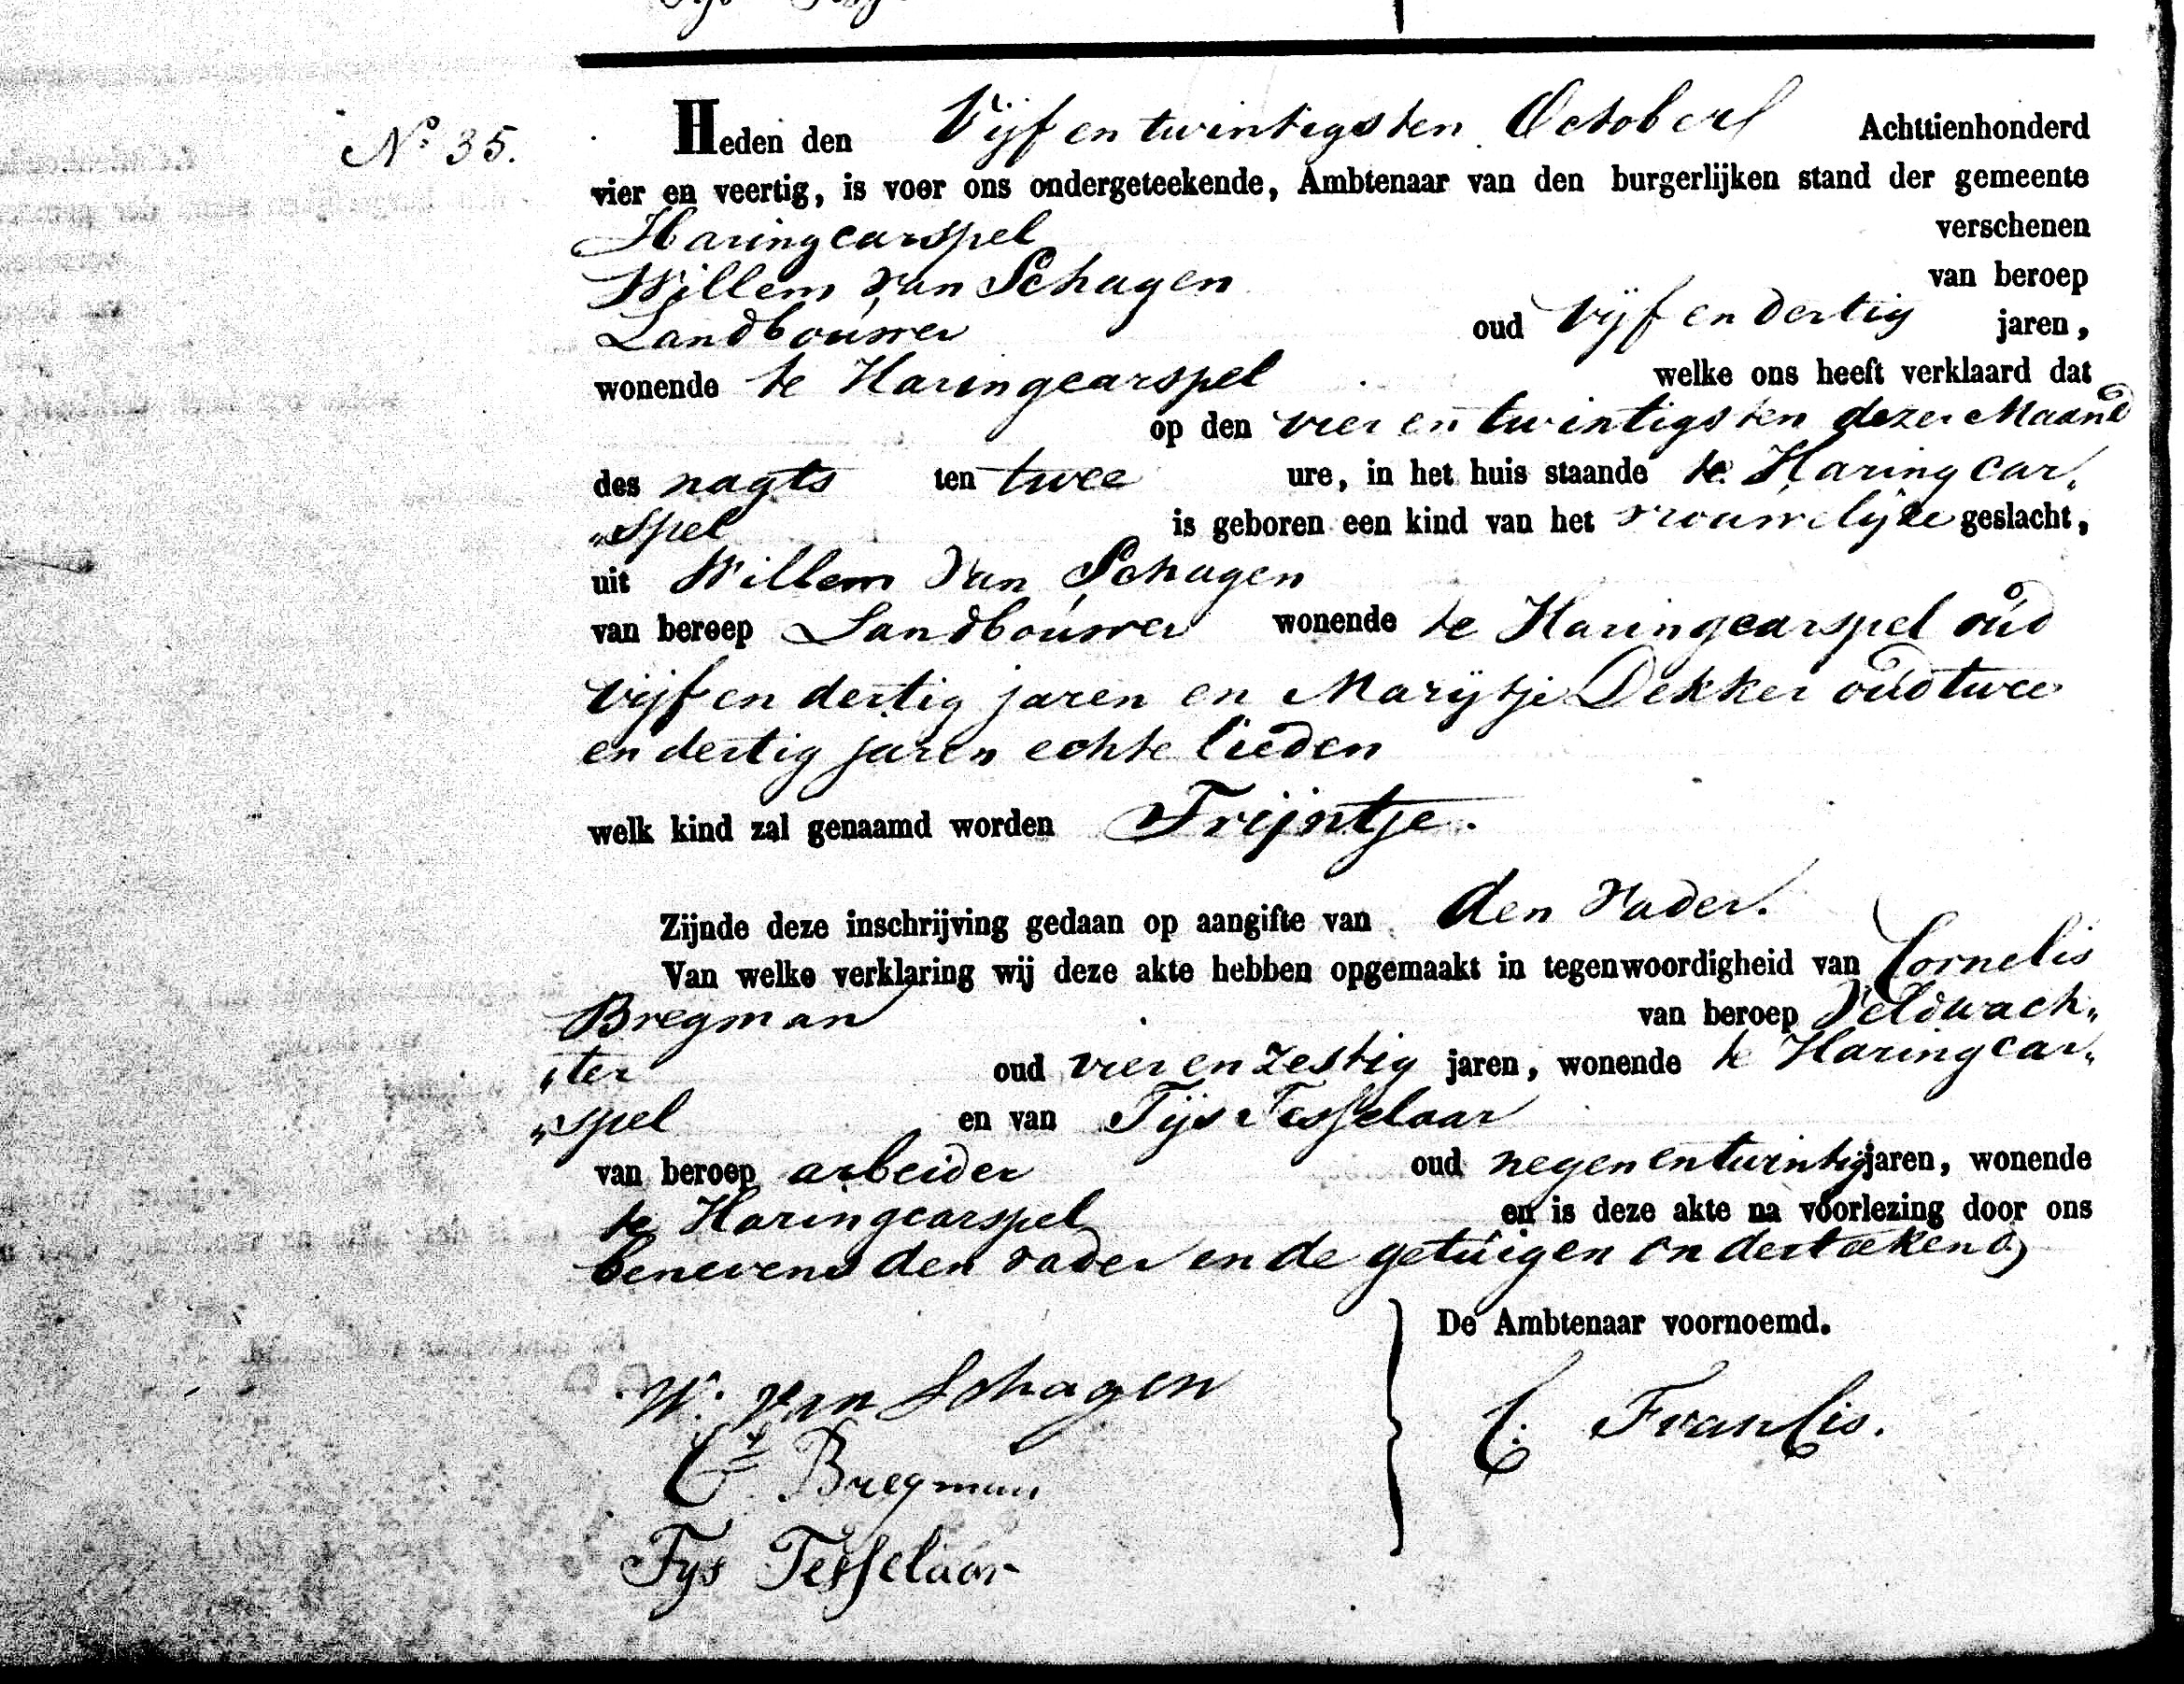 N.º 35.
Heden den Vijf en twintigsten October Achttienhonderd
vier en veertig, is voor ons ondergeteekende, Ambtenaar van den burgerlijken stand der gemeente
Haringcarspel verschenen
Willem van Schagen van beroep
Landbouwer oud vijf en dertig jaren,
wonende te Haringcarspel welke ons heeft verklaard dat
op den vier en twintigsten dezer Maand
des nagts ten twee ure, in het huis staande te Haringcar„
„spel is geboren een kind van het vrouwelijke geslacht,
uit Willem van Schagen
van beroep Landbouwer wonende te Haringcarspel oud
vijf en dertig jaren en Marijtje Dekker oud twee
en dertig jaren echte lieden
welk kind zal genaamd worden Trijntje.
Zijnde deze inschrijving gedaan op aangifte van den vader.
Van welke verklaring wij deze akte hebben opgemaakt in tegenwoordigheid van Cornelis
Bregman van beroep Veldwach„
„ter oud vier en zestig jaren, wonende te Haringcar„
„spel en van Tijs Tesselaar
van beroep arbeider oud negen en twintig jaren, wonende
te Haringcarspel en is deze akte na voorlezing door ons
benevens den vader en de getuigen ondertekend
De Ambtenaar voornoemd.
W. van Schagen
C. Francis.
Cs Bregman
Tys Tesselaar